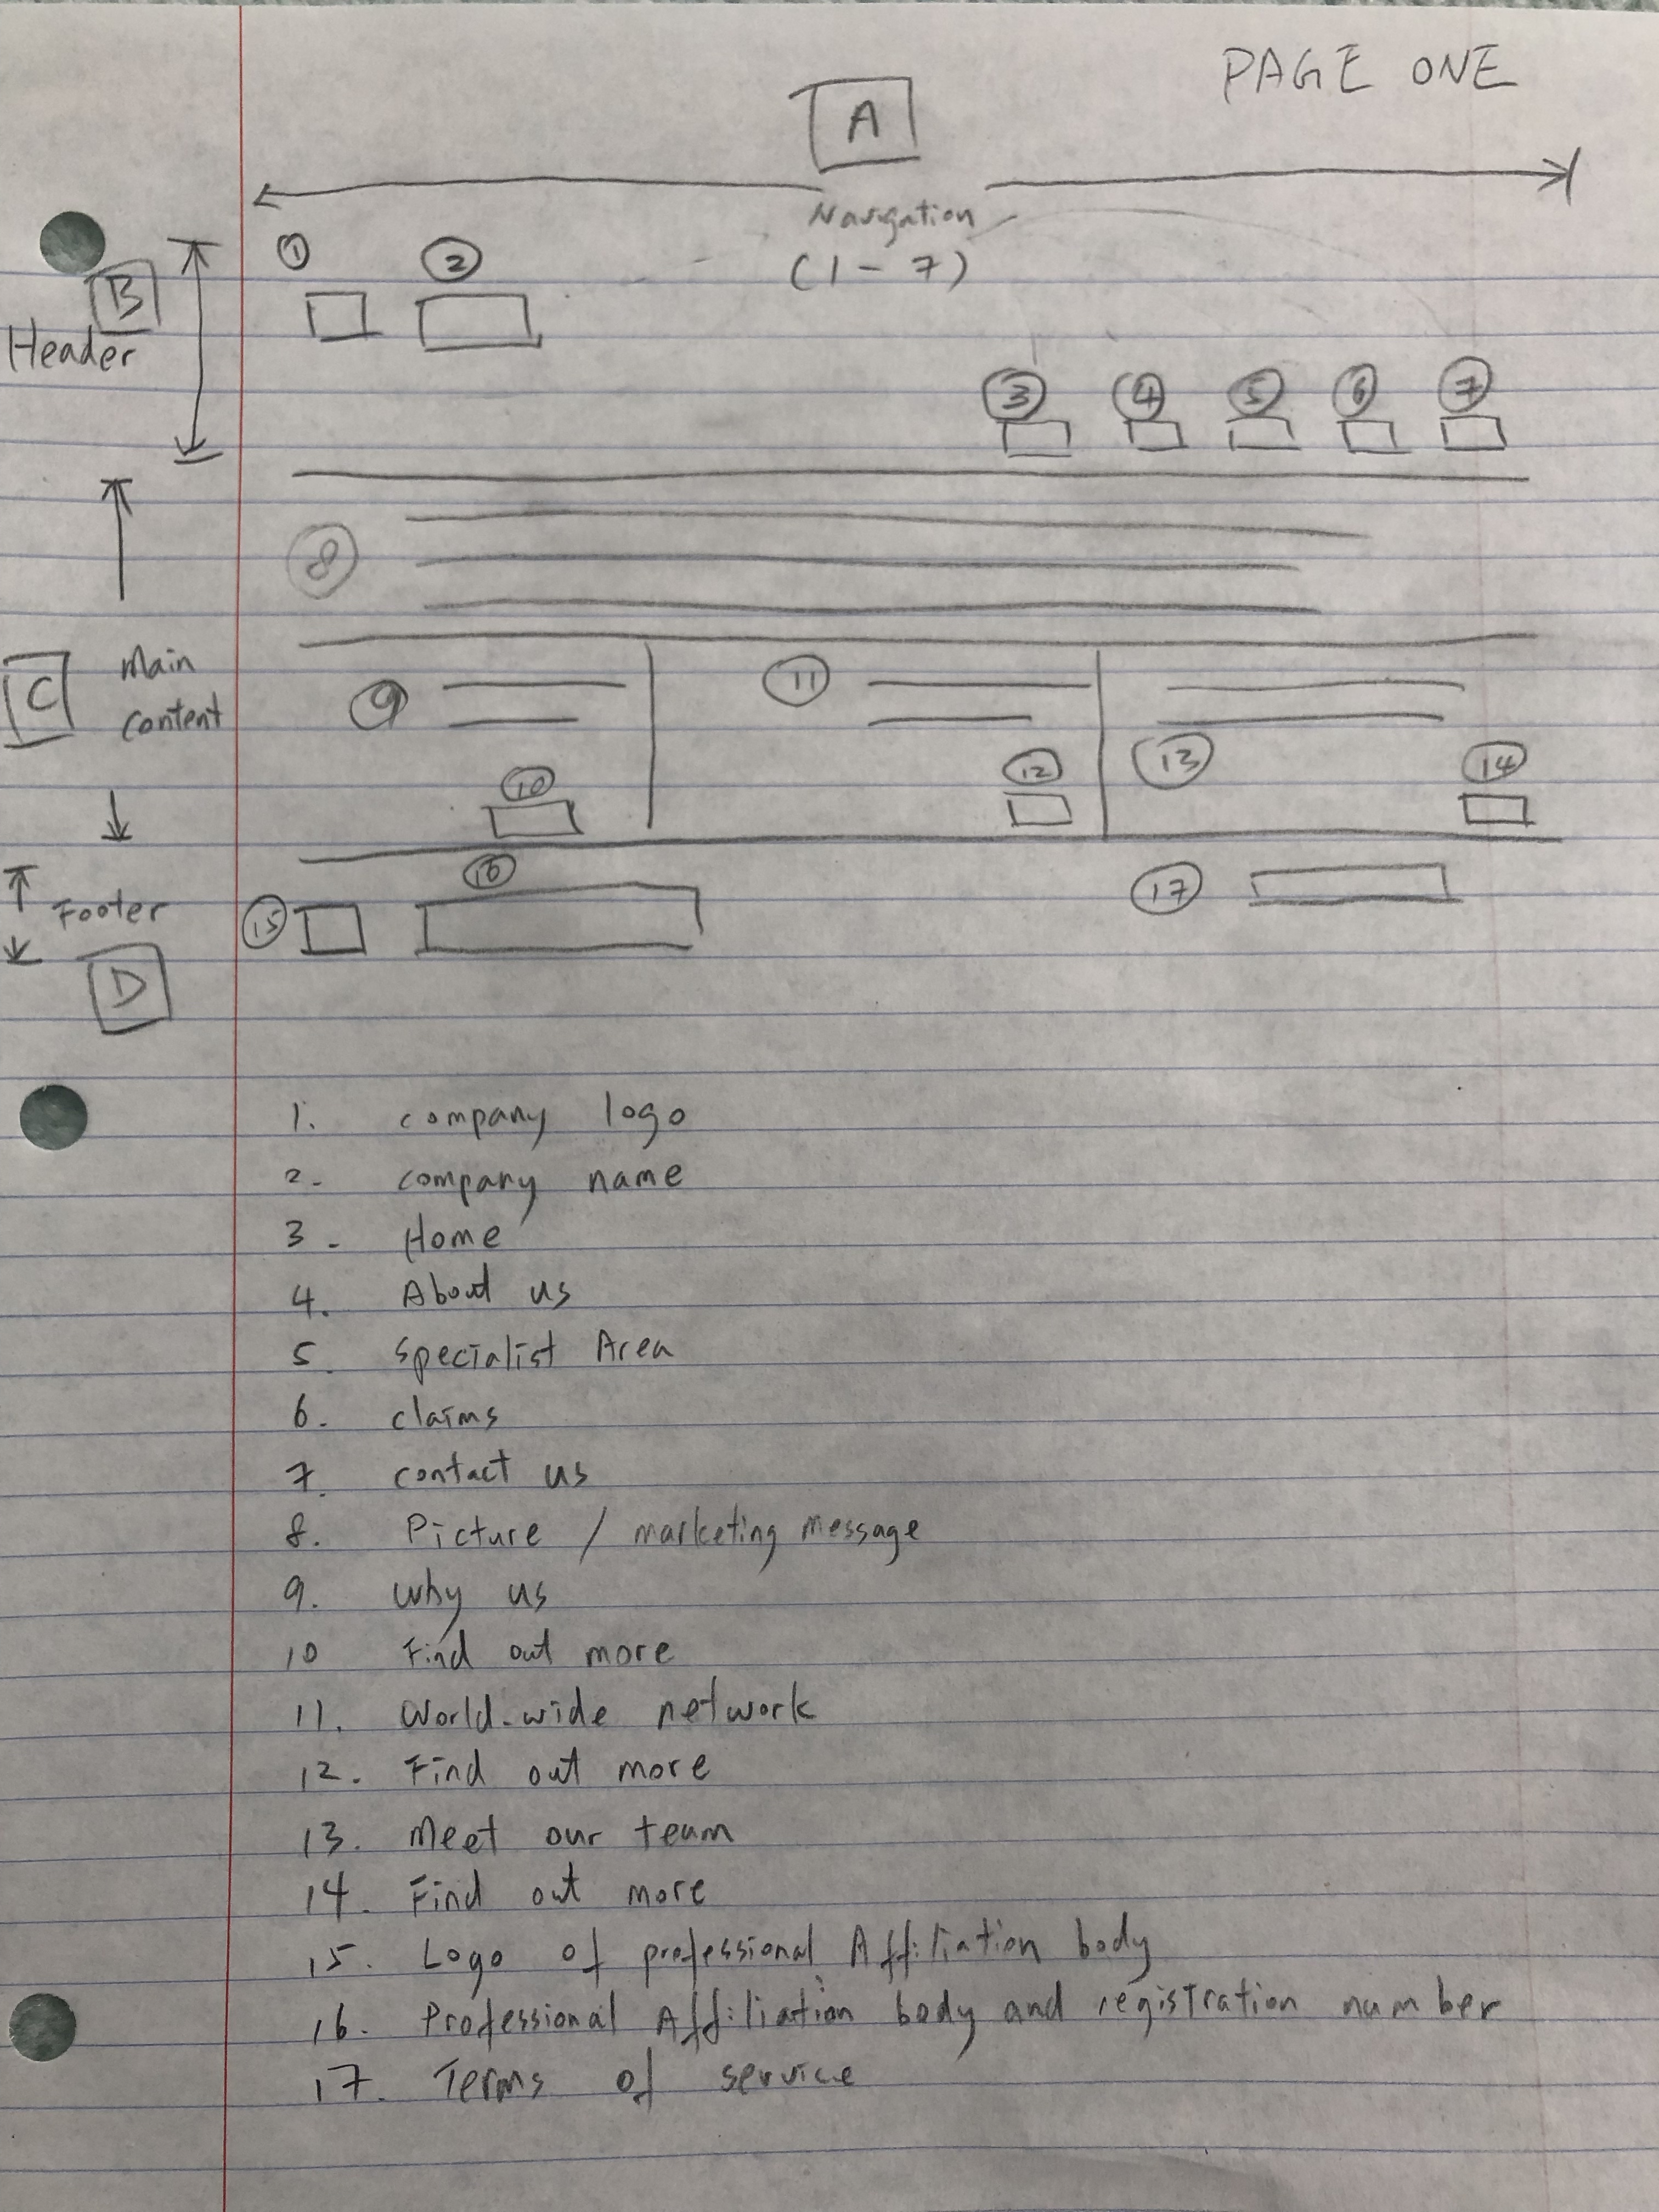 PAGE ONE
A
Navigation
(1-7)
1
2
B
Header
3 4 5 6 7
8
C
Main
content
9
11
10
12
13
14
16
17
Footer
15
D
1. company logo
2- company name
3- Home
4. About us
5. Specialist Area
6- claims
7. contact us
8. Picture / marketing message
9. Why us
10 Find out more
11. World-wide network
12. Find out more
13. Meet our team
14. Find out more
15. Logo of professional Affiliation body
16. Professional Affiliation body and registration number
17. Terms of service